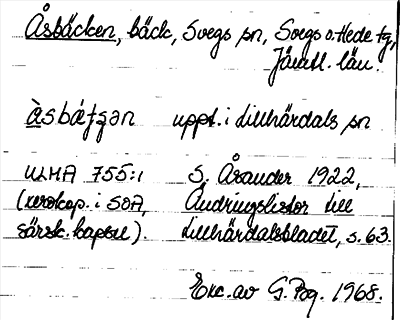 Åsbäcken, bäck, Svegs sn, Svegs o. Hede tg,
Jämtl. län.
àsbátʂən uppt. i Lillhärdals sn
ULMA 755:1 S. Åsander 1922,
(xerokop. i SOA, Ändringslistor till
särsk. kapsel). Lillhärdalsbladet, s. 63.
Exc. av G. Pog. 1968.